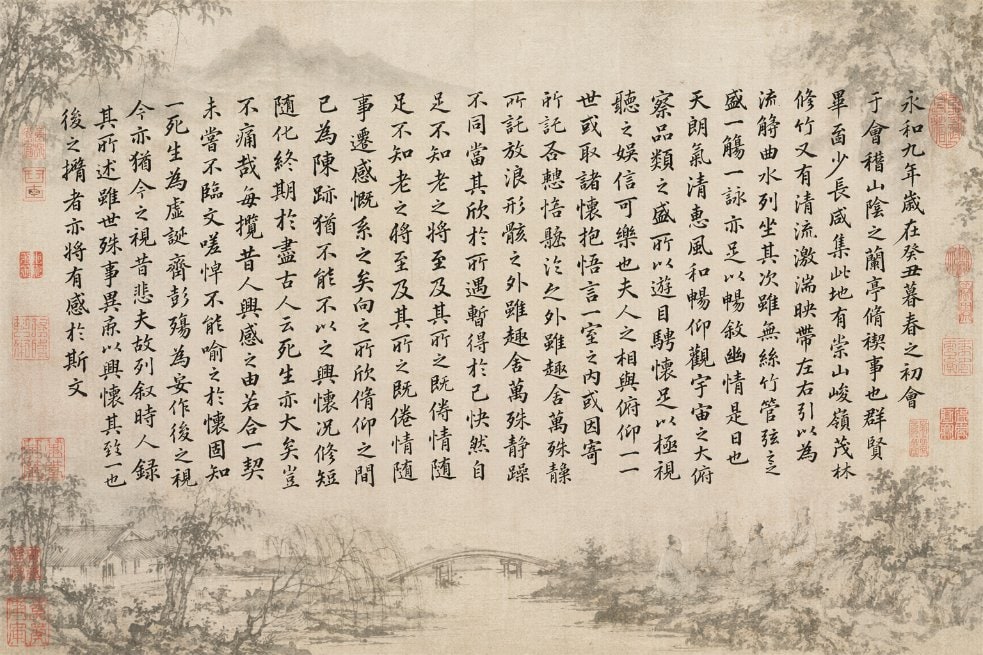 永和九年歲在癸丑暮春之初會
于會稽山陰之蘭亭脩禊事也群賢
畢少長咸集此地有崇山峻嶺茂林
修竹又有清流激湍映帶左右引以為
流觴曲水列坐其次雖無絲竹管弦之
盛一觴一詠亦足以暢敘幽情是日也
天朗氣清惠風和暢仰觀宇宙之大俯
察品類之盛所以遊目騁懷足以極視
聽之娛信可樂也夫人之相與俯仰一一
世或取諸懷抱悟言一室之內或因寄
所託悟之外雖趣舍萬殊靜
所託放浪形骸之外雖趣舍萬殊静躁
不同當其欣於所遇暫得於己快然自
足不知老之將至及其所之既倦情隨
足不知老之將至及其所之既倦情隨
事遷感慨系之矣向之所欣脩仰之間
已為陳跡猶不能不以之興懷况修短
隨化終期於盡古人云死生亦大矣豈
不痛哉每攬昔人興感之由若合一契
未嘗不臨文嗟悼不能喻之於懷固知
一死生為虛誕齊彭殤為妄作後之視
今亦猶今之視昔悲夫故列叙時人録
其所述雖世殊事異以興懷其一也
後之攬者亦將有感於斯文